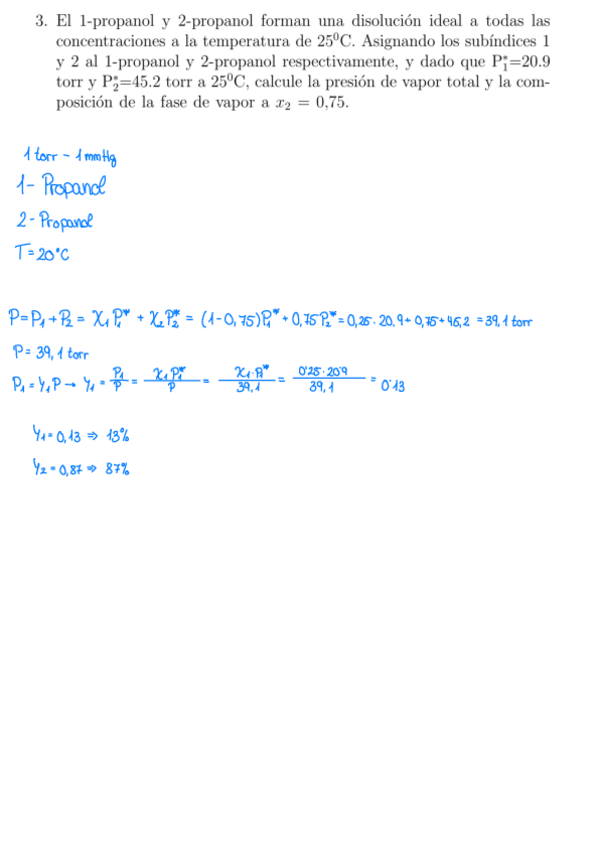 3. El 1-propanol y 2-propanol forman una disolución ideal a todas las
concentraciones a la temperatura de 25⁰C. Asignando los subíndices 1
y 2 al 1-propanol y 2-propanol respectivamente, y dado que P₁*=20.9
torr y P₂*=45.2 torr a 25⁰C, calcule la presión de vapor total y la com-
posición de la fase de vapor a x₂ = 0,75.
1 torr - 1 mmHg
1- Propanol
2- Propanol
T = 20°C
P = P₁ + P₂ = X₁ P₁* + X₂ P₂* = (1-0,75)P₁* + 0,75 P₂* = 0,25 · 20,9 + 0,75 + 45,2 = 39,1 torr
P = 39,1 torr
P₁ = Y₁ P → Y₁ = P₁/P = X₁ P₁*/P = X₁ · P₁*/39,1 = 0'25 · 20'9/39,1 = 0'13
Y₁ = 0,13 ⇒ 13%
Y₂ = 0,87 ⇒ 87%